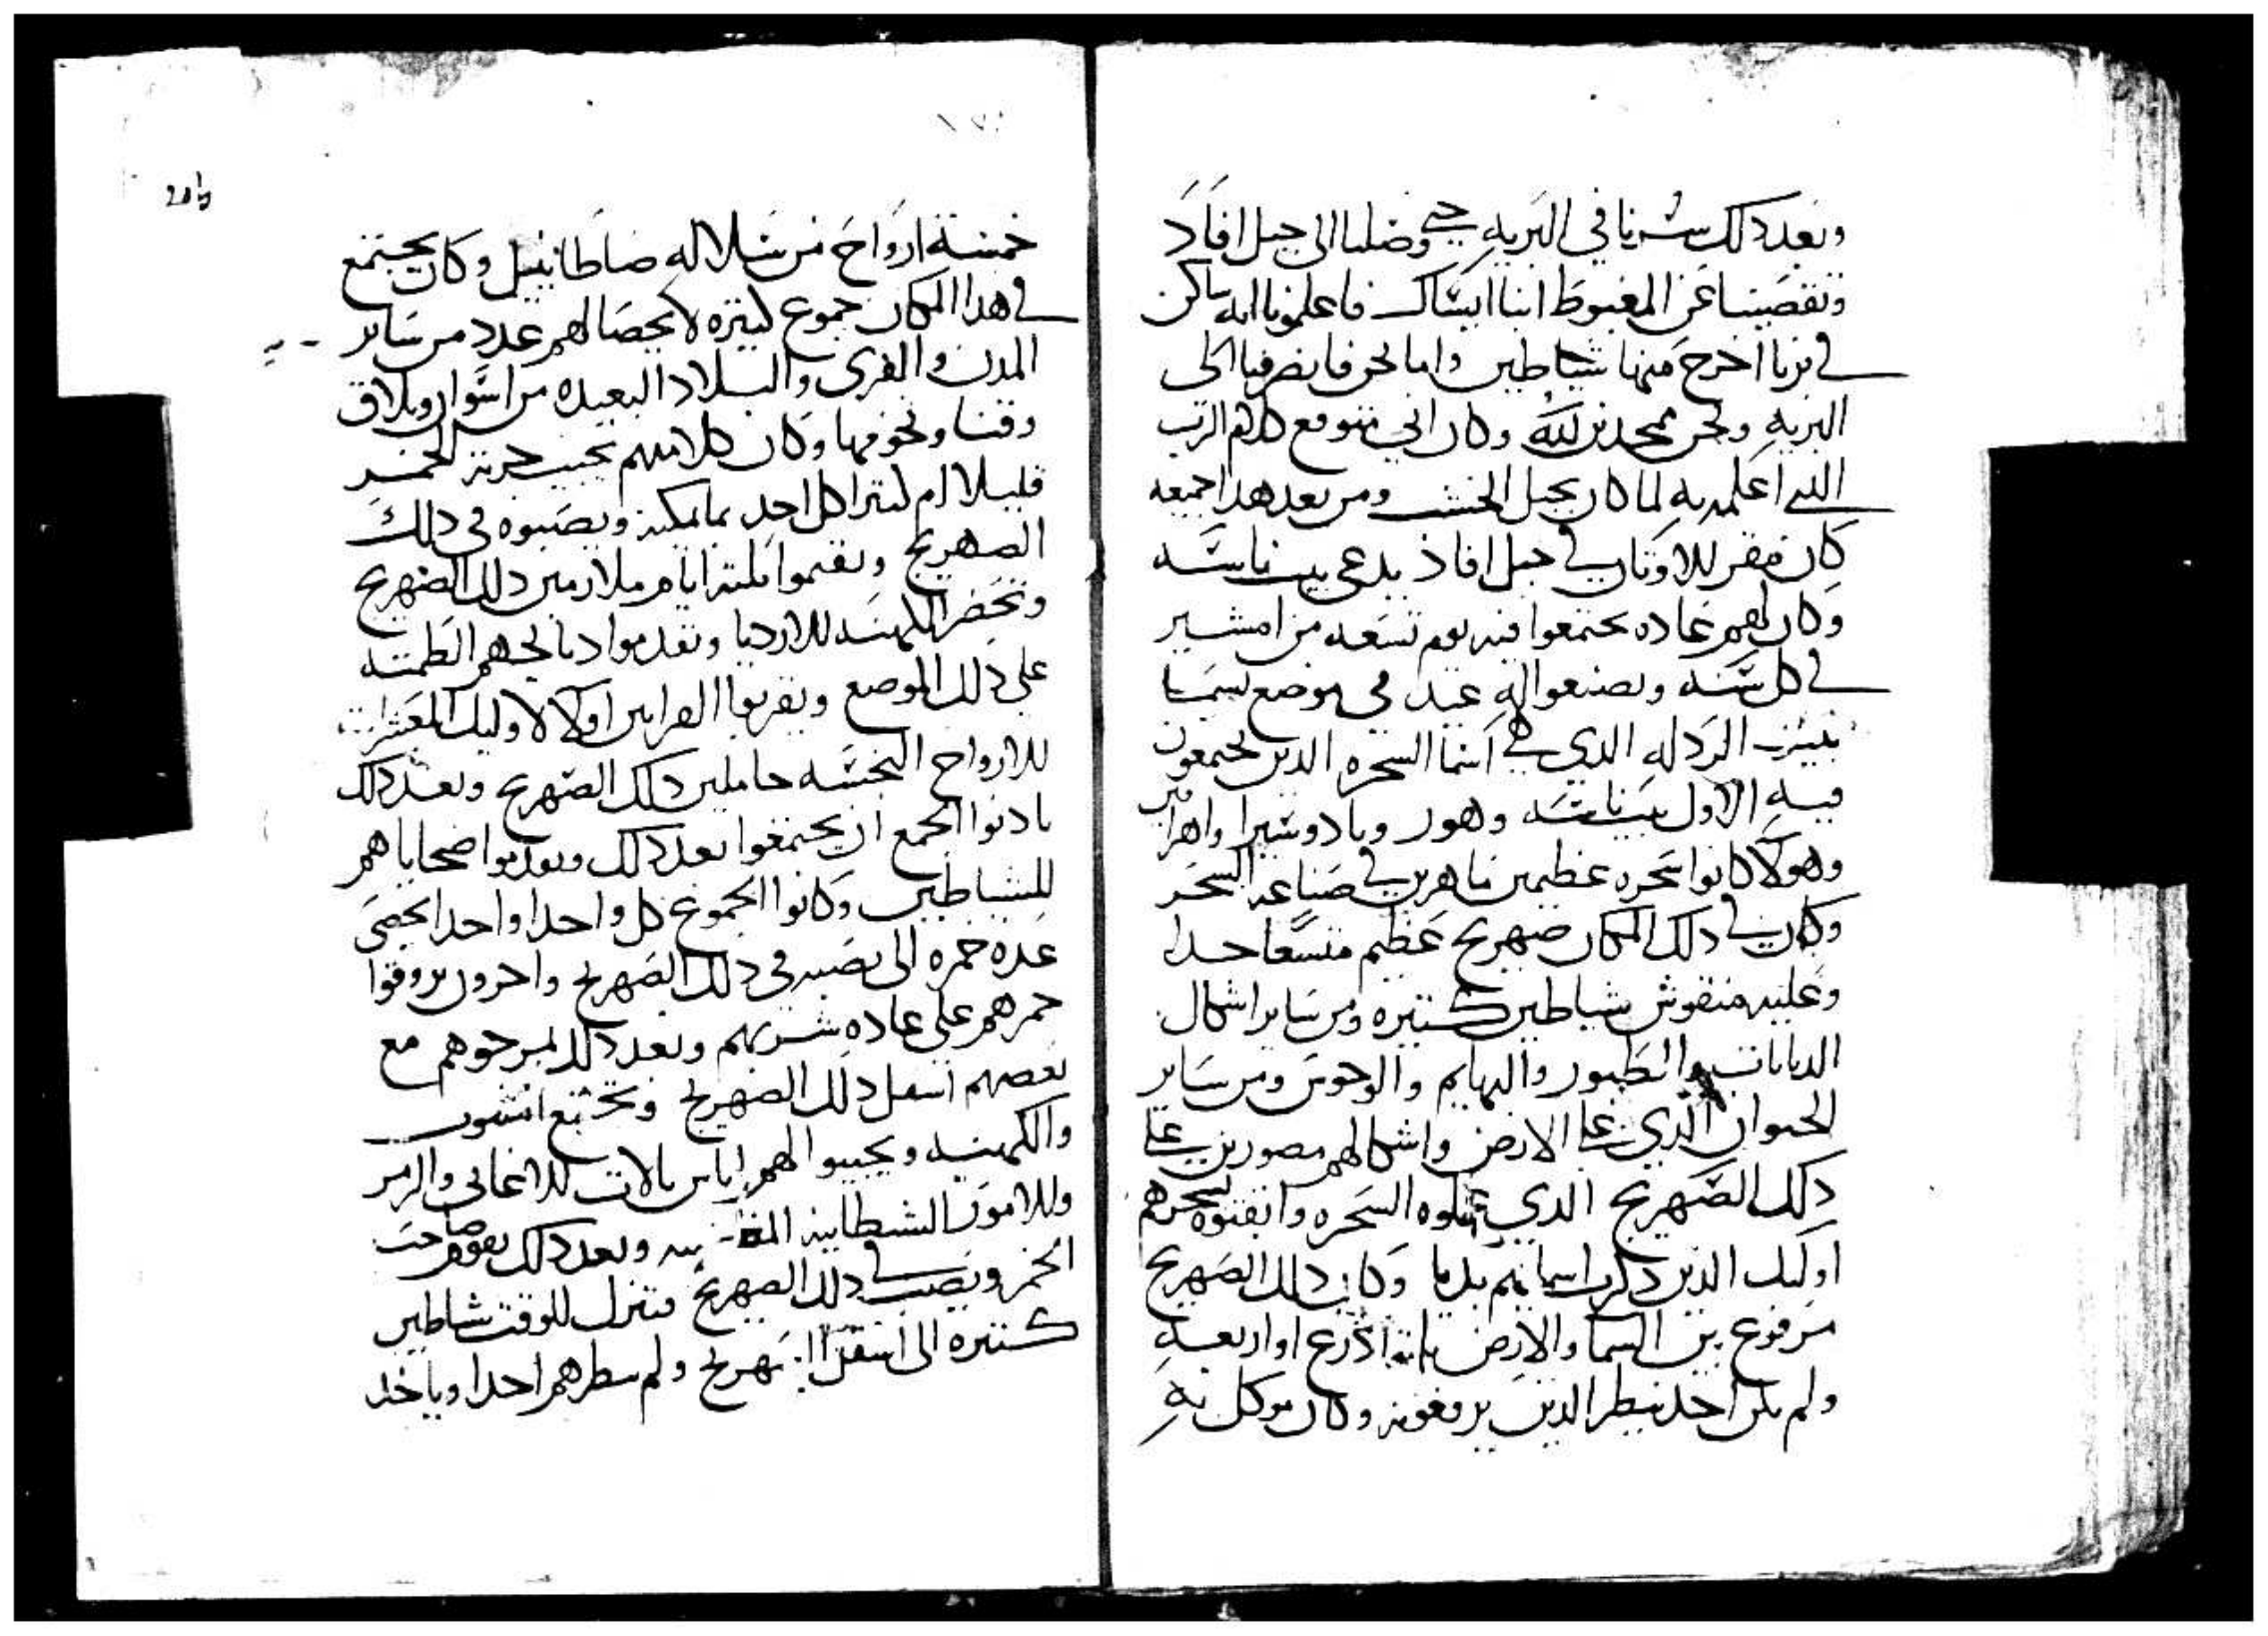 وبعد ذلك سرنا في البريه حتى وصلنا الى جبل افاد
وتقصينا عن المغبوط انبا ايساك فاعلمونا انه ساكن
في بربا اخرج منها شياطين واما نحن فانصرفنا الى
البريه ونحن ممجدين لله وكان ابي متوقع كلام الرب
الذي اعلمه به لما كان بجبل الخشب ومن بعد هذا جميعه
كان مقر للاوتان في جبل افاد يدعى بيت ناسه
وكان لهم عاده يجتمعوا فيه يوم تسعه من امشير
في كل سنه ويصنعوا له عيد في موضع يسما
الردله الدي هي اسما السحره الدين يجتمعون
فيه الاول بيت ناسه وهور وبادوسيرا واهرامر
وهولا كانوا سحره عظيمين ماهرين في صناعه السحر
وكان في دلك المكان صهريج عظيم متسعا جدا
وعليه منقوش شياطين كتيره ومن ساير اشكال
الدبابات والطيور والبهايم والوحوش ومن ساير
الحيوان الدي على الارض واشكالهم مصورين على
دلك الصهريج الدي عملوه السحره واتقنوه بسحرهم
اوليك الدين دكرت اسمايهم بديا وكان دلك الصهريج
مرفوع بين السما والارض تلتة ادرع او اربعه
ولم يكن احد ينظر الدين يرفعونه وكان موكل به
خمسة ارواح من سلالة صاطانييل وكان يجتمع
في هدا المكان جموع كتيره لا يحصا لهم عدد من ساير
المدن والقرى والبلاد البعيده من اسوان وبلاق
وقنا ونحومها وكان كلا منهم يجيب جرية الخمر
قليلا ام كتيرا كل احد بما يمكنه ويصبوه في دلك
الصهريج ويقيموا تلتة ايام ملازمين دلك الصهريج
وتحضر الكهنه للارديا ويقدموا دبايحهم الطمته
على دلك الموضع ويقربوا القرابين اوكلا لاوليك المعشرات
للارواح النجسه حاملين دلك الصهريج وبعد دلك
يادنوا الجمع ان يجتمعوا بعد دلك ويقدموا ضحاياهم
للشياطين وكانوا الجموع كل واحدا واحدا يحصى
عدة خمره الى يصبه في دلك الصهريج واخرون يروقوا
خمرهم على عادة شربهم وبعد دلك يمرجوهم مع
بعضهم اسفل دلك الصهريج وتجتمع
والكهنه ويجيبوا لهم اناس بالات للاغاني والزمر
وللامور الشيطانيه وبعد دلك يقوم صاحب
الخمر ويصب في دلك الصهريج فتنزل للوقت شياطين
كتيره الى اسفل الصهريج ولم ينظرهم احدا وياخد